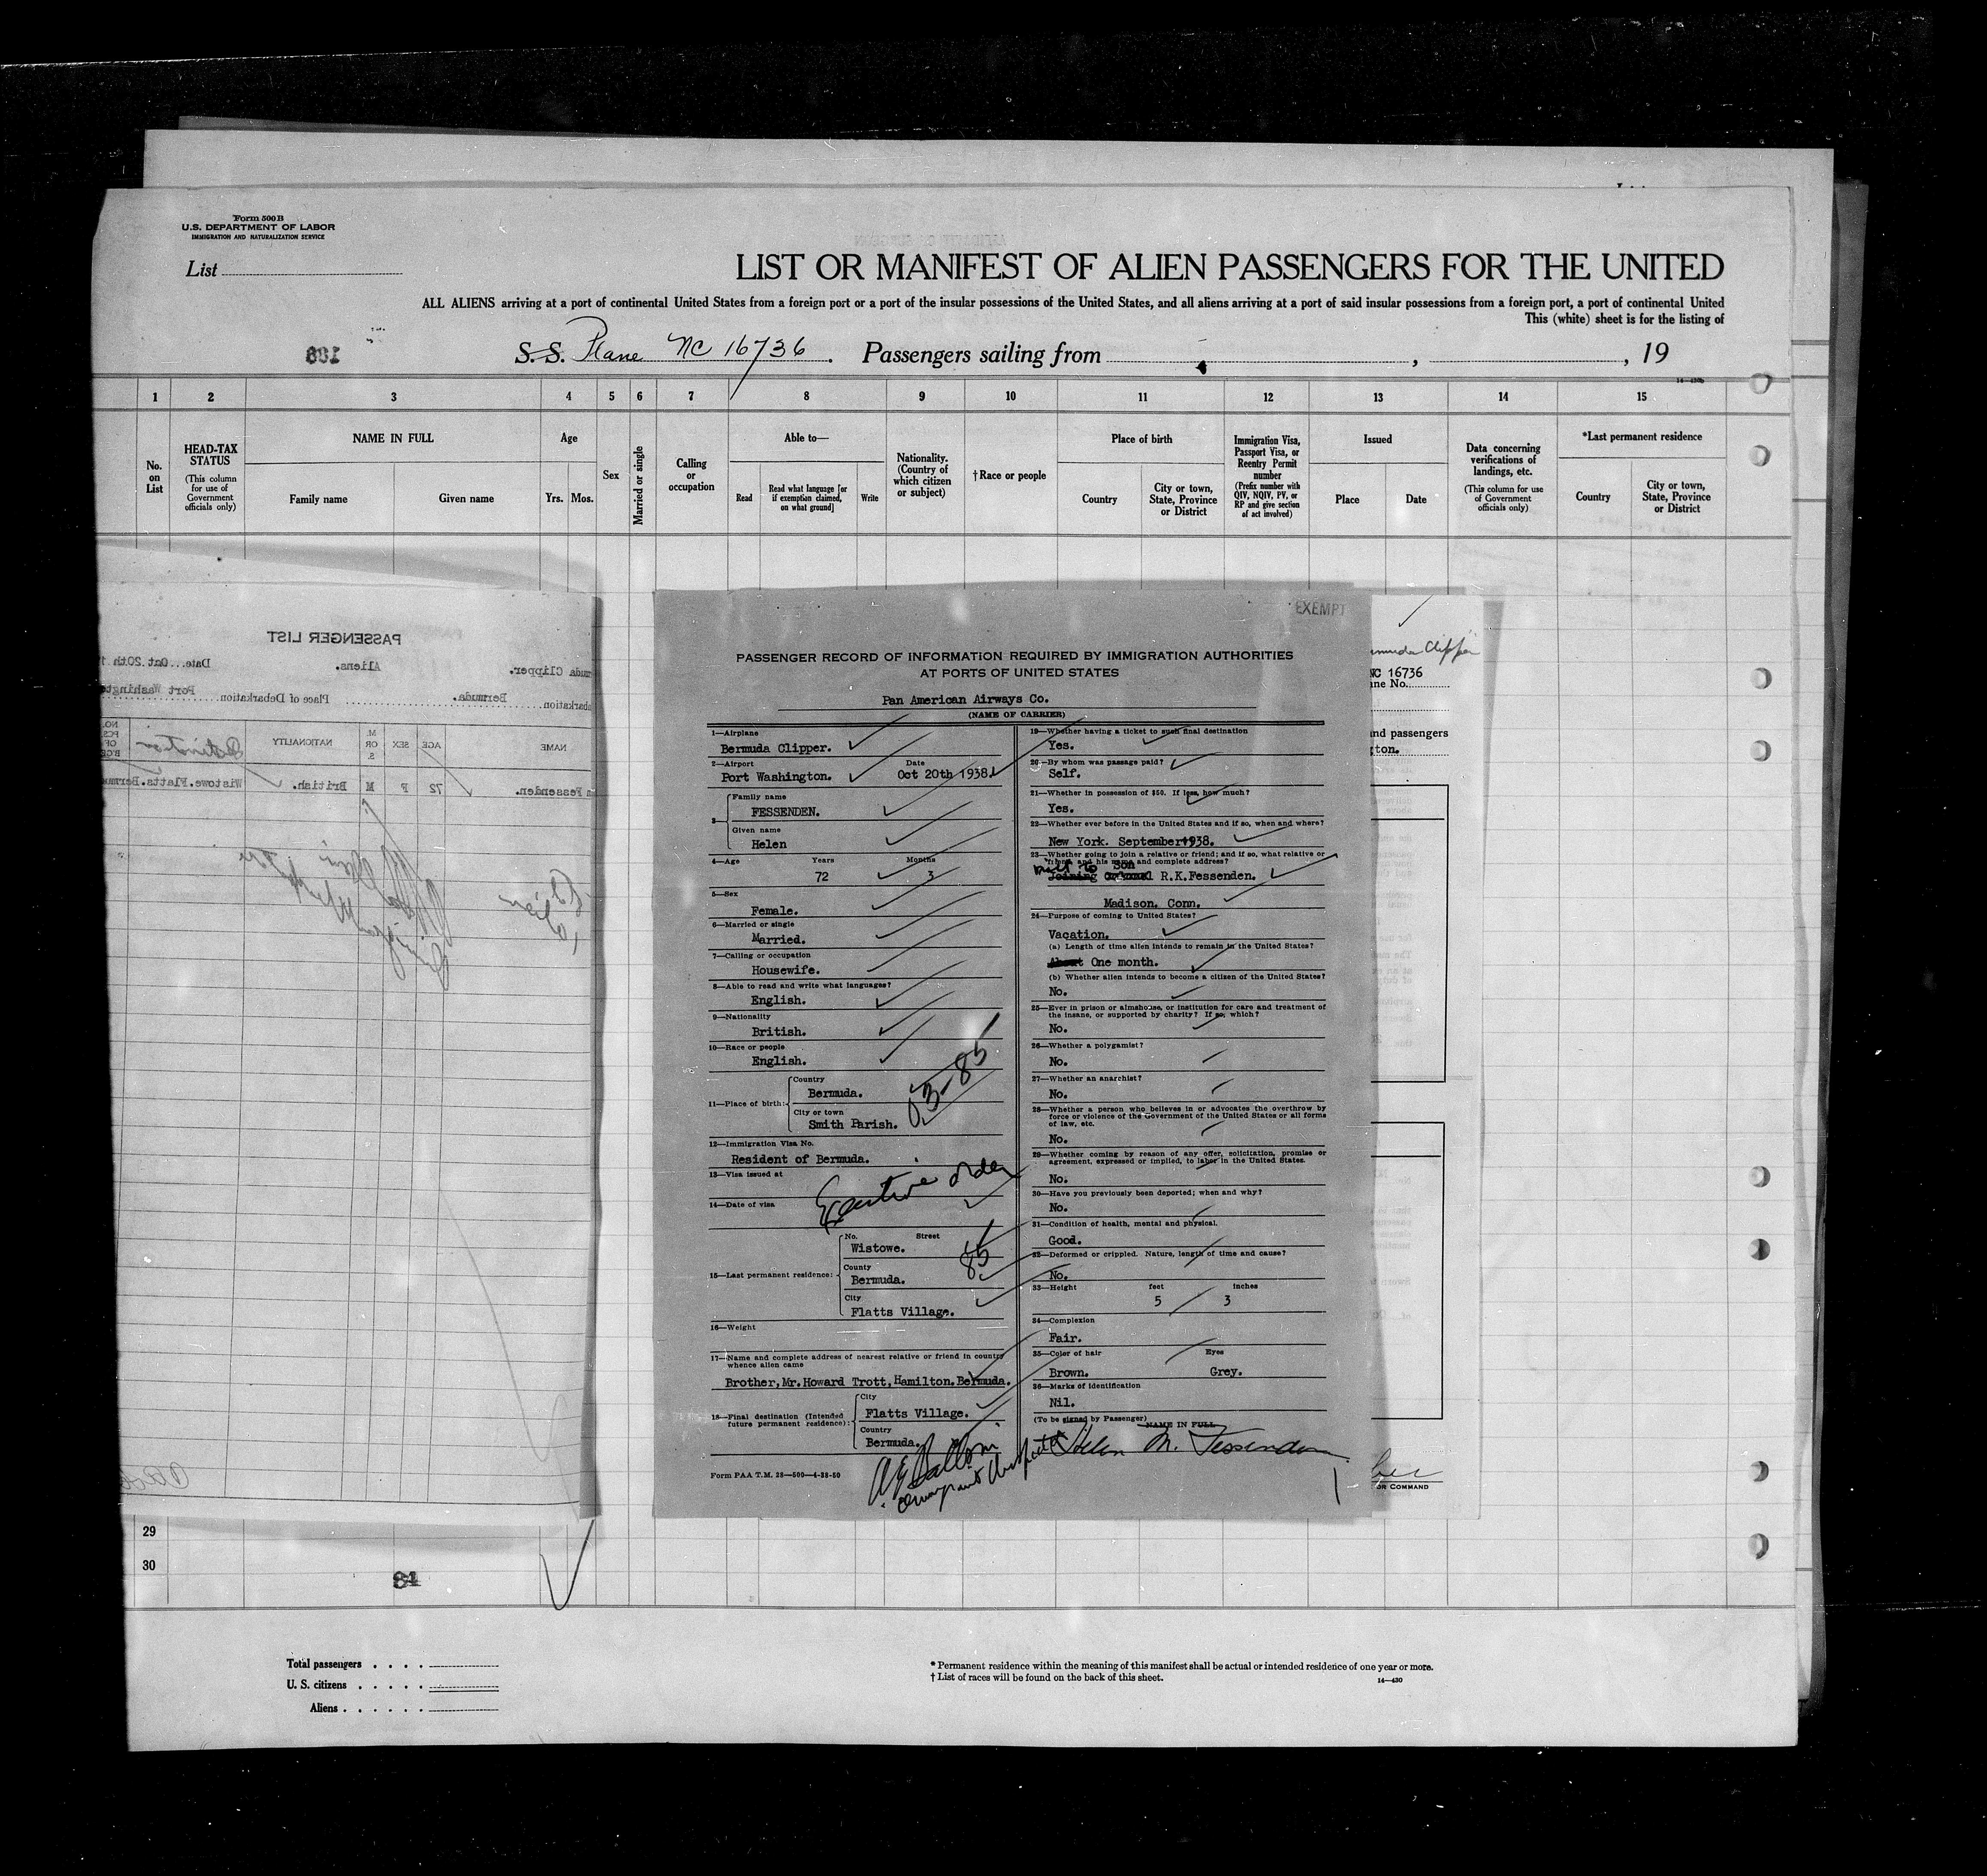 Form 500 B
U.S. DEPARTMENT OF LABOR
IMMIGRATION AND NATURALIZATION SERVICE
List
LIST OR MANIFEST OF ALIEN PASSENGERS FOR THE UNITED
ALL ALIENS arriving at a port of continental United States from a foreign port or a port of the insular possessions of the United States, and all aliens arriving at a port of said insular possessions from a foreign port, a port of continental United
This (white) sheet is for the listing of
S. S. Plane NC 16736. Passengers sailing from , , 19
1 2 3 4 5 6 7 8 9 10 11 12 13 14 15
No. on List
HEAD-TAX STATUS
(This column for use of Government officials only)
NAME IN FULL
Family name
Given name
Age
Yrs. Mos.
Sex
Married or single
Calling or occupation
Able to—
Read
Read what language [or if exemption claimed, on what ground]
Write
Nationality. (Country of which citizen or subject)
†Race or people
Place of birth
Country
City or town, State, Province or District
Immigration Visa, Passport Visa, or Reentry Permit number
(Prefix number with QIV, NQIV, PV, or RP and give section of act involved)
Issued
Place
Date
Data concerning verifications of landings, etc.
(This column for use of Government officials only)
*Last permanent residence
Country
City or town, State, Province or District
PASSENGER LIST
Clipper. Aliens. Date...Oct.20th
Bermuda. Place of Debarkation Port Washington
NAME AGE SEX M. OR S. NATIONALITY Destination NO. PCS. OF
Fessenden. 72 F M British. Wistowe.Flatts.
EXEMPT
PASSENGER RECORD OF INFORMATION REQUIRED BY IMMIGRATION AUTHORITIES
AT PORTS OF UNITED STATES
Pan American Airways Co.
(NAME OF CARRIER)
1—Airplane
Bermuda Clipper.
2—Airport Date
Port Washington. Oct 20th 1938
3— Family name
FESSENDEN.
Given name
Helen
4—Age Years Months
72 3
5—Sex
Female.
6—Married or single
Married.
7—Calling or occupation
Housewife.
8—Able to read and write what languages?
English.
9—Nationality
British.
10—Race or people
English.
11—Place of birth: Country
Bermuda.
City or town
Smith Parish.
03-85
12—Immigration Visa No.
Resident of Bermuda.
13—Visa issued at
Executive order
14—Date of visa
15—Last permanent residence: No. Street
Wistowe.
85
County
Bermuda.
City
Flatts Village.
16—Weight
17—Name and complete address of nearest relative or friend in country
whence alien came
Brother,Mr.Howard Trott,Hamilton.Bermuda.
18—Final destination (Intended
future permanent residence): City
Flatts Village.
Country
Bermuda.
Form PAA T.M. 28—500—4-28-50
19—Whether having a ticket to such final destination
Yes.
20—By whom was passage paid?
Self.
21—Whether in possession of $50. If less, how much?
Yes.
22—Whether ever before in the United States and if so, when and where?
New York. September1938.
23—Whether going to join a relative or friend; and if so, what relative or
friend and his name and complete address?
Joining Son R.K.Fessenden.
Madison. Conn.
24—Purpose of coming to United States?
Vacation.
(a) Length of time alien intends to remain in the United States?
About One month.
(b) Whether alien intends to become a citizen of the United States?
No.
25—Ever in prison or almshouse, or institution for care and treatment of
the insane, or supported by charity? If so, which?
No.
26—Whether a polygamist?
No.
27—Whether an anarchist?
No.
28—Whether a person who believes in or advocates the overthrow by
force or violence of the Government of the United States or all forms
of law, etc.
No.
29—Whether coming by reason of any offer, solicitation, promise or
agreement, expressed or implied, to labor in the United States.
No.
30—Have you previously been deported; when and why?
No.
31—Condition of health, mental and physical.
Good.
32—Deformed or crippled. Nature, length of time and cause?
No.
33—Height feet inches
5 3
34—Complexion
Fair.
35—Color of hair Eyes
Brown. Grey.
36—Marks of identification
Nil.
(To be signed by Passenger) NAME IN FULL
Helen M. Fessenden
Clipper
NC 16736
No.
and passengers
OR COMMAND
29
30
84
Total passengers
U. S. citizens
Aliens
* Permanent residence within the meaning of this manifest shall be actual or intended residence of one year or more.
† List of races will be found on the back of this sheet. 14—430